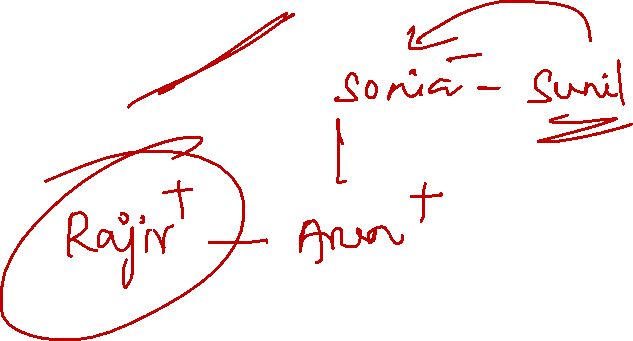 Sonia - Sunil
Rajiv+ - Arun+